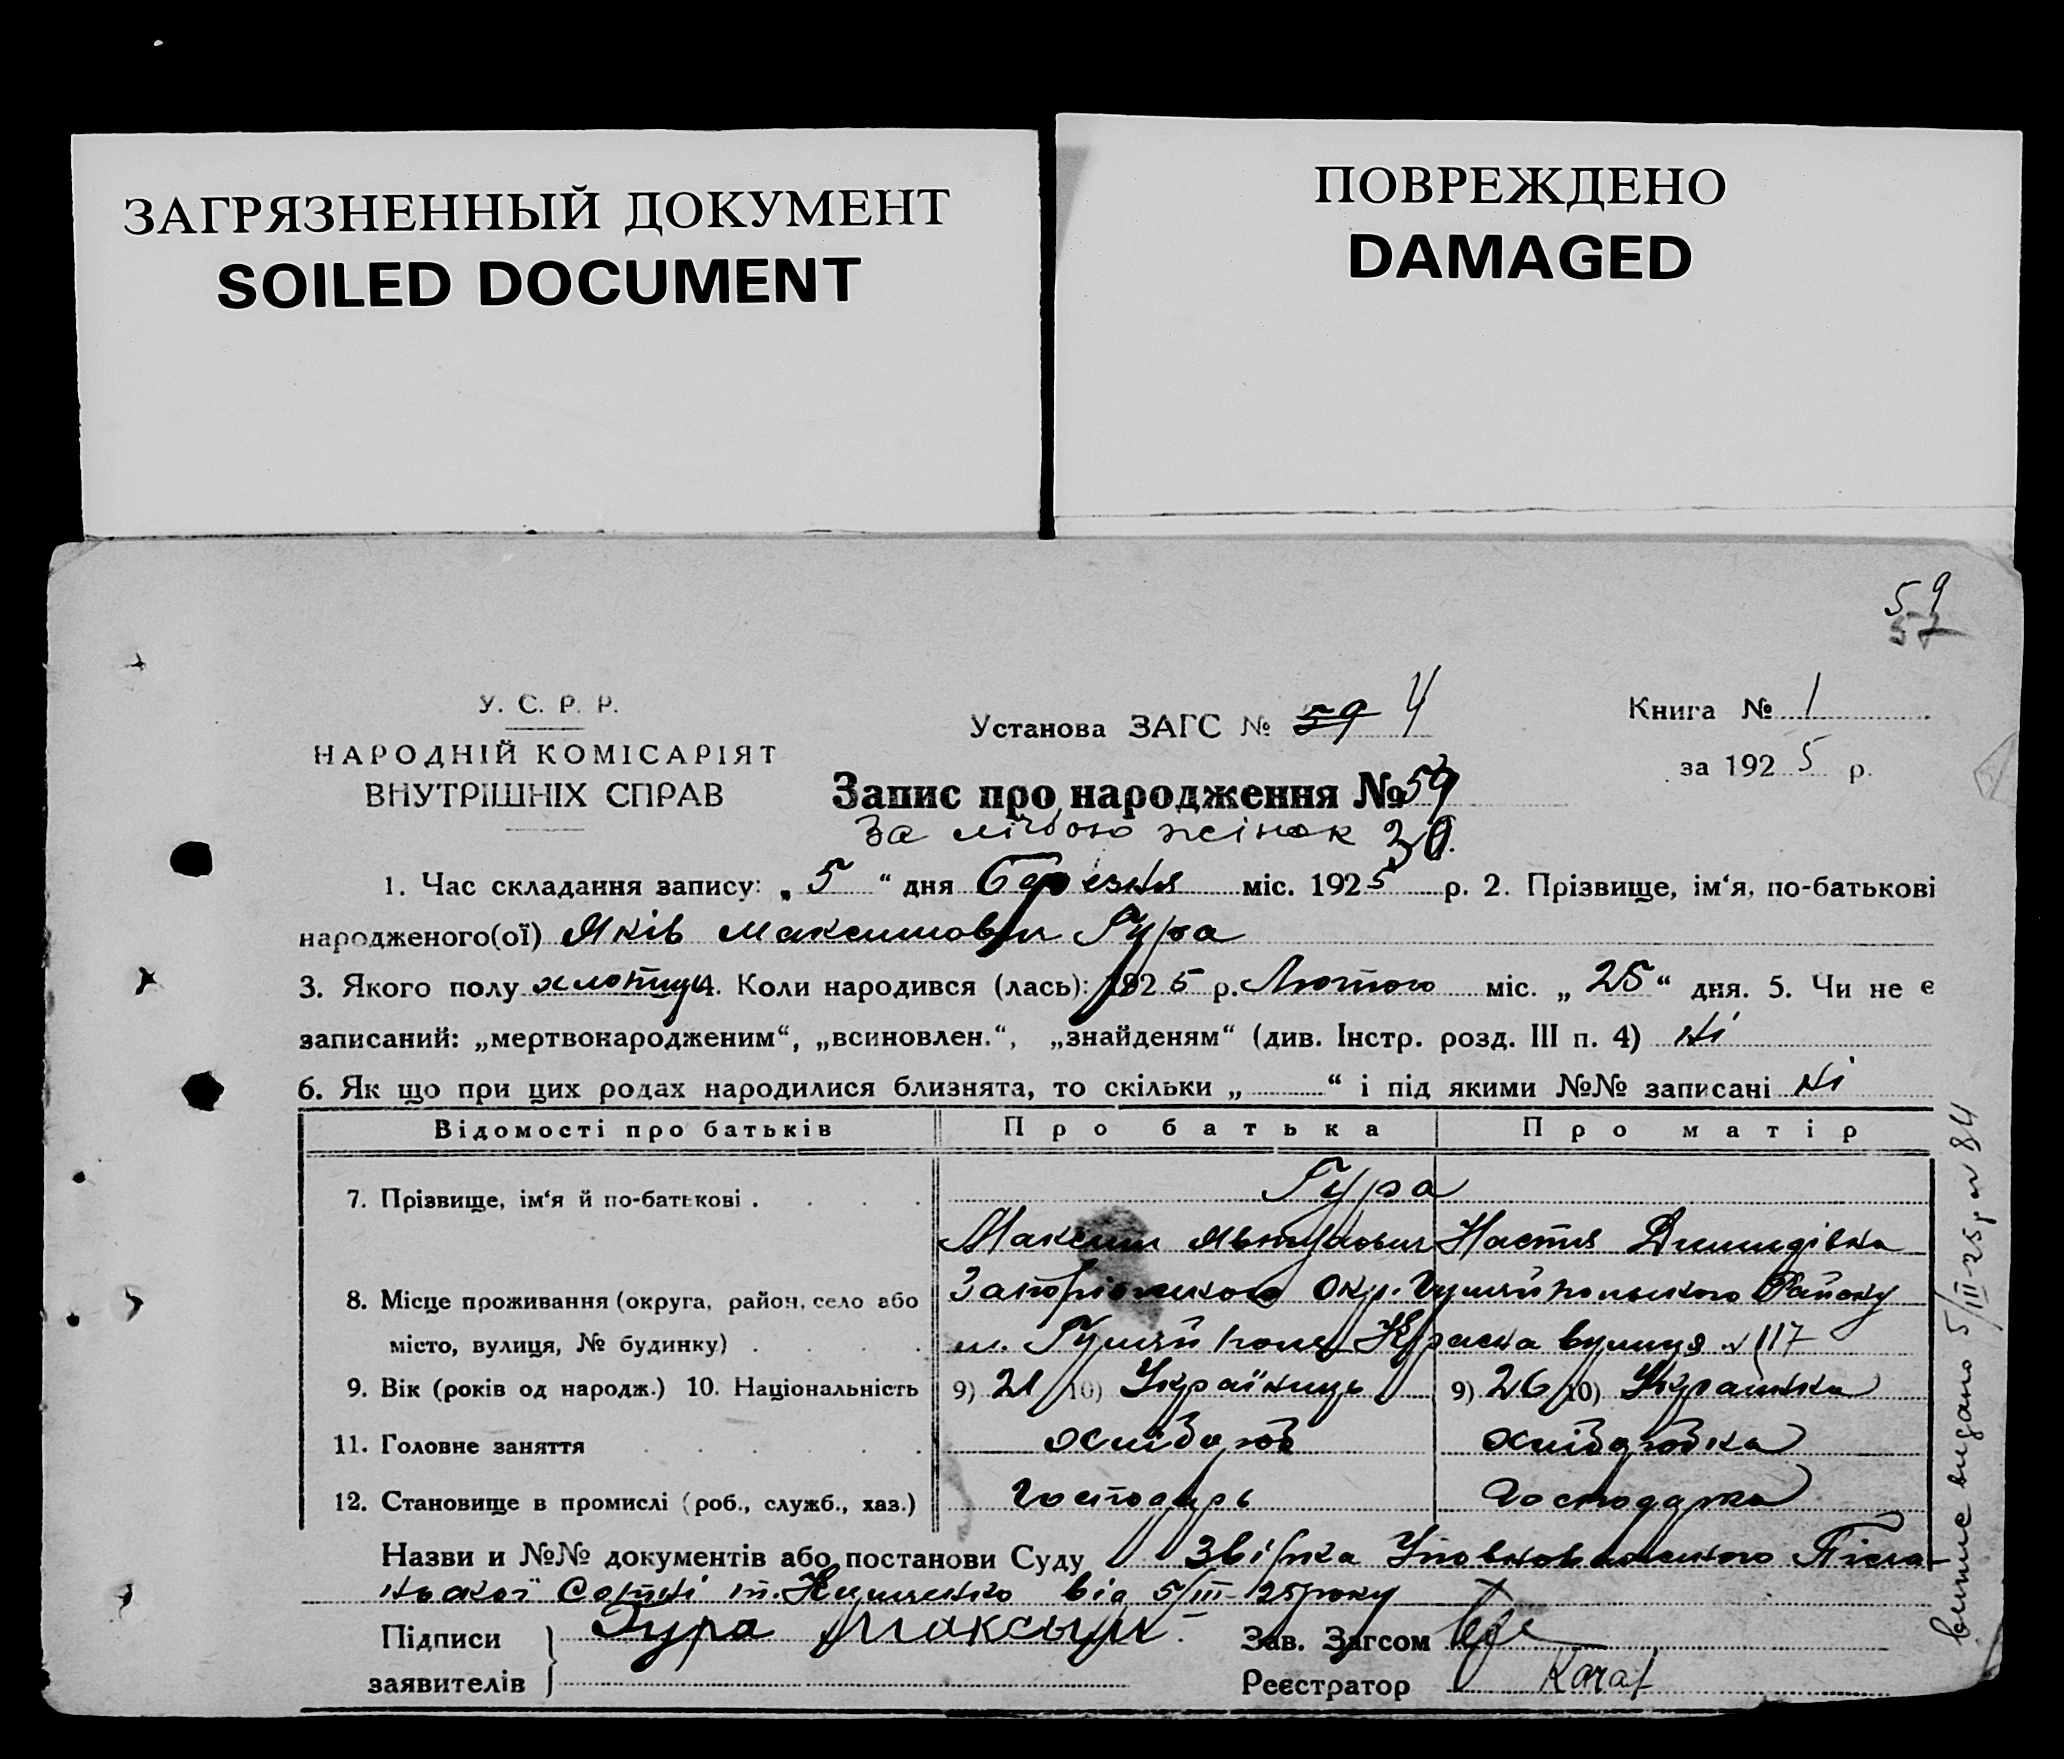 ЗАГРЯЗНЕННЫЙ ДОКУМЕНТ
SOILED DOCUMENT
ПОВРЕЖДЕНО
DAMAGED
59
57
У. С. Р. Р.
НАРОДНІЙ КОМІСАРІЯТ
ВНУТРІШНІХ СПРАВ
Установа ЗАГС № 59 4
Книга № 1
за 1925 р.
Запис про народження № 59
За лічбою жінок 30.
1. Час складання запису: „ 5 “ дня Березня міс. 1925 р. 2. Прізвище, ім‘я, по-батькові
народженого(ої) Яків Максимович Гура
3. Якого полу хлопець 4. Коли народився (лась): 1925 р. Лютого міс. „ 25 “ дня. 5. Чи не є
записаний: „мертвонародженим“, „всиновлен.“, „знайденям“ (див. Інстр. розд. III п. 4) ні
6. Як що при цих родах народилися близнята, то скільки „ “ і під якими №№ записані ні
Відомості про батьків Про батька Про матір
7. Прізвище, ім‘я й по-батькові . . . . Гура
Максим Настя Демидівна
8. Місце проживання (округа, район, село або Запоріжського Окр. Гуляйпольського Району
місто, вулиця, № будинку) . . . . м. Гуляй поле вулиця № 117
9. Вік (років од народж.) 10. Національність 9) 21 10) Українець 9) 26 10) Українка
11. Головне заняття . . . . . хлібороб хліборобка
12. Становище в промислі (роб., служб., хаз.) господарь господарка
Назви и №№ документів або постанови Суду
Сотні т. від 5/III-25 року
Підписи Гура Максым. Зав. Загсом
заявителів Реєстратор
видано 5/III-25 р № 84